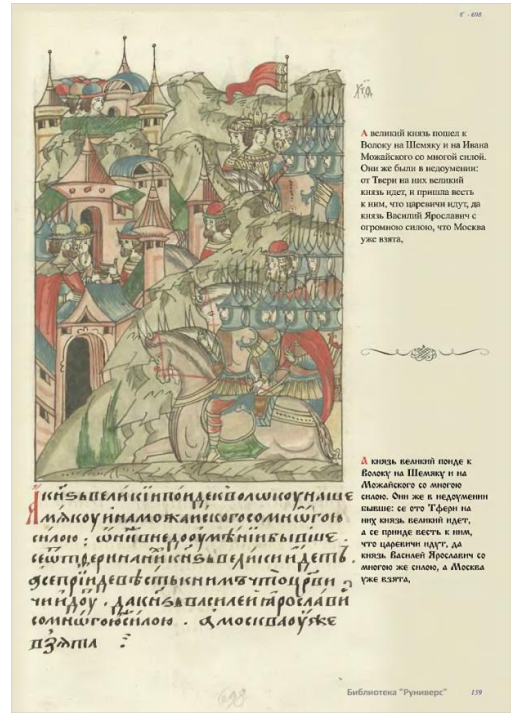 6 - 698
А великий князь пошел к
Волоку на Шемяку и на Ивана
Можайского со многой силой.
Они же были в недоумении:
от Твери на них великий
князь идет, и пришла весть
к ним, что царевичи идут, да
князь Василий Ярославич с
огромною силою, что Москва
уже взята,
А князь великий поиде к
Волоку на Шемяку и на
Можайского со многою
силою. Они же в недоумении
бывше: се ото Тфери на
них князь великий идет,
а се прииде весть к ним,
что царевичи идут, да
князь Василей Ярославич со
многою же силою, а Москва
уже взята,
А кн҃ѕь великїи поиде к волокоу на ше
мѧкоу и на можаиского со мнѡгою
силою : ѡни же в недооумѣнїи бывше .
се ѿ тѳери на ни кн҃ѕь великїи идеть ,
а се прїиде вѣсть к нимъ что цр҃ви
чи идоу . да кн҃ѕь василеи ꙗрославї
со мнѡгою силою . а москва оуже
взѧта :
698
Библиотека "Руниверс"
159